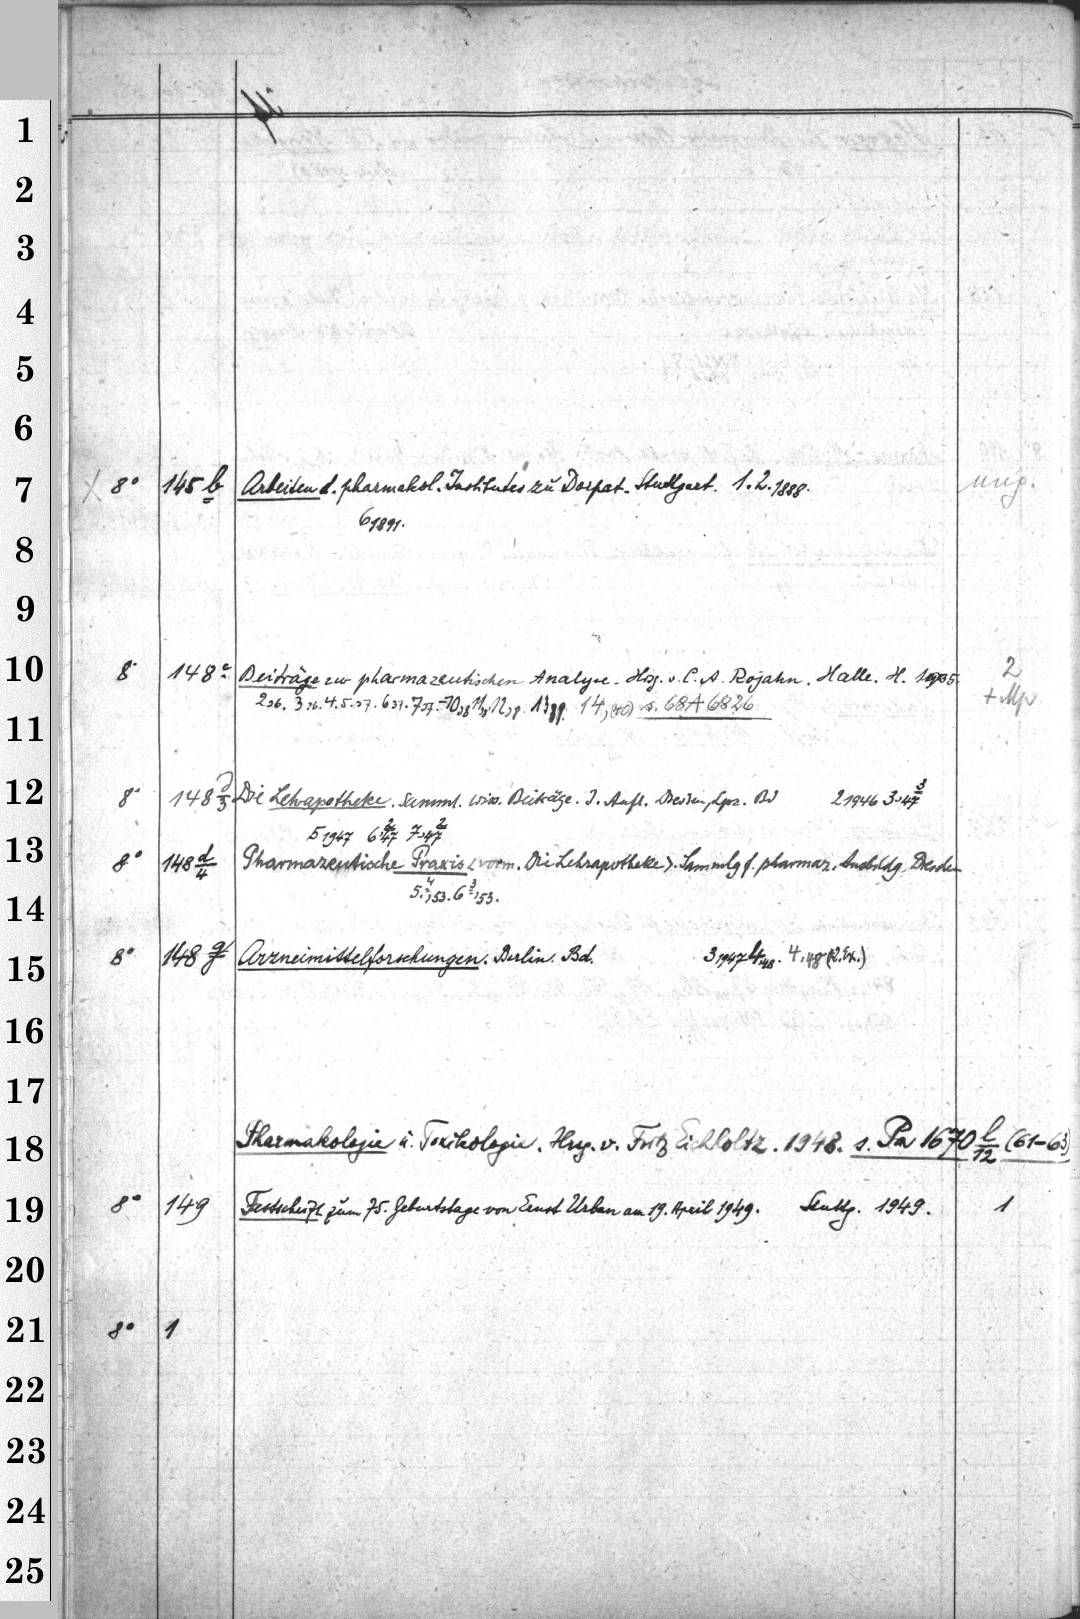 1
2
3
4
5
6
7 8° 145 b Arbeiten d. pharmakol. Institutes zu Dorpat. Stuttgart. 1.2.1888. ung.
6 1891.
8
9
10 8° 148 c Beiträge zur pharmazeutischen Analyse. Hrsg. v. C. A. Rojahn. Halle. H. 1 2
2,36. 3,36. 4.5.,37. 6,37. 7,37.-10,38 11,38 12,39. 13,39. 14,(40) s. 68 A 6826
11
12 8° 148 d/3 Die Lehrapotheke. Samml. wiss. Beiträge. 2. Aufl. Dresden, Lpz. Bd 2 1946 3,47
5 1947 6,47 7,47
13 8° 148 d/4 Pharmazeutische Praxis (vorm. Die Lehrapotheke). Sammlg f. pharmaz. Ausbildg. Dresden
14 5.,53. 6,53.
15 8° 148 g Arzneimittelforschungen. Berlin. Bd. 3,1947 4,48. 4,48 (2. Ex.)
16
17
18 Pharmakologie u. Toxikologie. Hrsg. v. Fritz Eichholtz. 1948. s. Pa 1670 l/12 (61-63)
19 8° 149 Festschrift zum 75. Geburtstage von Ernst Urban am 19. April 1949. Stuttg. 1949. 1
20
21 8° 1
22
23
24
25